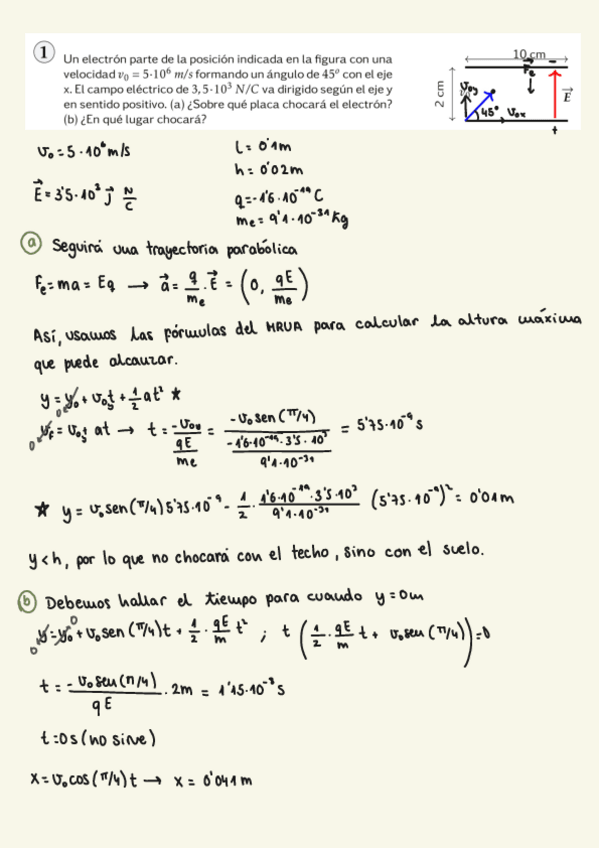 1 Un electrón parte de la posición indicada en la figura con una
velocidad v₀ = 5·10⁶ m/s formando un ángulo de 45º con el eje
x. El campo eléctrico de 3,5·10³ N/C va dirigido según el eje y
en sentido positivo. (a) ¿Sobre qué placa chocará el electrón?
(b) ¿En qué lugar chocará?
10 cm
2 cm
Fe
E
Voy
45°
Vox
+
V₀ = 5·10⁶ m/s
l = 0'1m
h = 0'02m
E = 3'5·10³ j N/C
q = -1'6·10⁻¹⁹ C
me = 9'1·10⁻³¹ Kg
a Seguirá una trayectoria parabólica
Fe = ma = Eq → a = q/me · E = (0, qE/me)
Así, usamos las fórmulas del MRUA para calcular la altura máxima
que puede alcanzar.
y = y₀ + v₀t + 1/2 at² ★
0
vf = v₀ + at → t = -voy / (qE/me) = -v₀ sen(π/4) / (-1'6·10⁻¹⁹·3'5·10³ / 9'1·10⁻³¹) = 5'75·10⁻⁹ s
0
★ y = v₀ sen(π/4) 5'75·10⁻⁹ - 1/2 · 1'6·10⁻¹⁹·3'5·10³ / 9'1·10⁻³¹ (5'75·10⁻⁹)² = 0'01m
y < h, por lo que no chocará con el techo, sino con el suelo.
b Debemos hallar el tiempo para cuando y = 0m
y = y₀ + v₀ sen(π/4)t + 1/2 · qE/m t² ; t (1/2 · qE/m t + v₀ sen(π/4)) = 0
0 0
t = -v₀ sen(π/4) / qE · 2m = 1'15·10⁻⁸ s
t = 0s (no sirve)
x = v₀ cos(π/4) t → x = 0'041 m